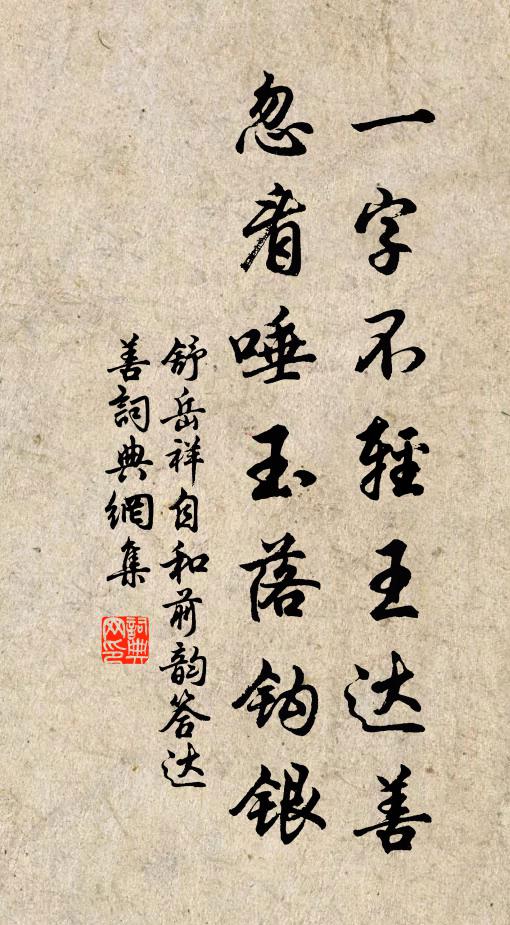 一字不輕王达善
忽看唾玉落钩银
舒岳祥自和前韵答达
善詞典網集
詞典網印